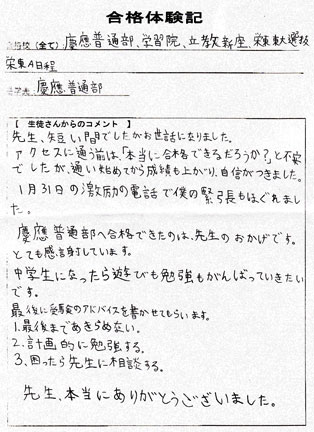 合格体験記
合格校（全て）慶應普通部、学習院、立教新座、栄東東大選抜
栄東A日程
進学先 慶應普通部
【 生徒さんからのコメント 】
先生、短い間でしたがお世話になりました。
アクセスに通う前は、「本当に合格できるだろうか?」と不安
でしたが、通い始めてから成績も上がり、自信がつきました。
1月31日の激励の電話で僕の緊張もほぐれまし
た。
慶應普通部へ合格できたのは、先生のおかげです。
とても感謝しています。
中学生になったら遊びも勉強もがんばっていきたい
です。
最後に受験会のアドバイスを書かせてもらいます。
1.最後まであきらめない。
2.計画的に勉強する。
3.困ったら先生に相談する。
先生、本当にありがとうございました。